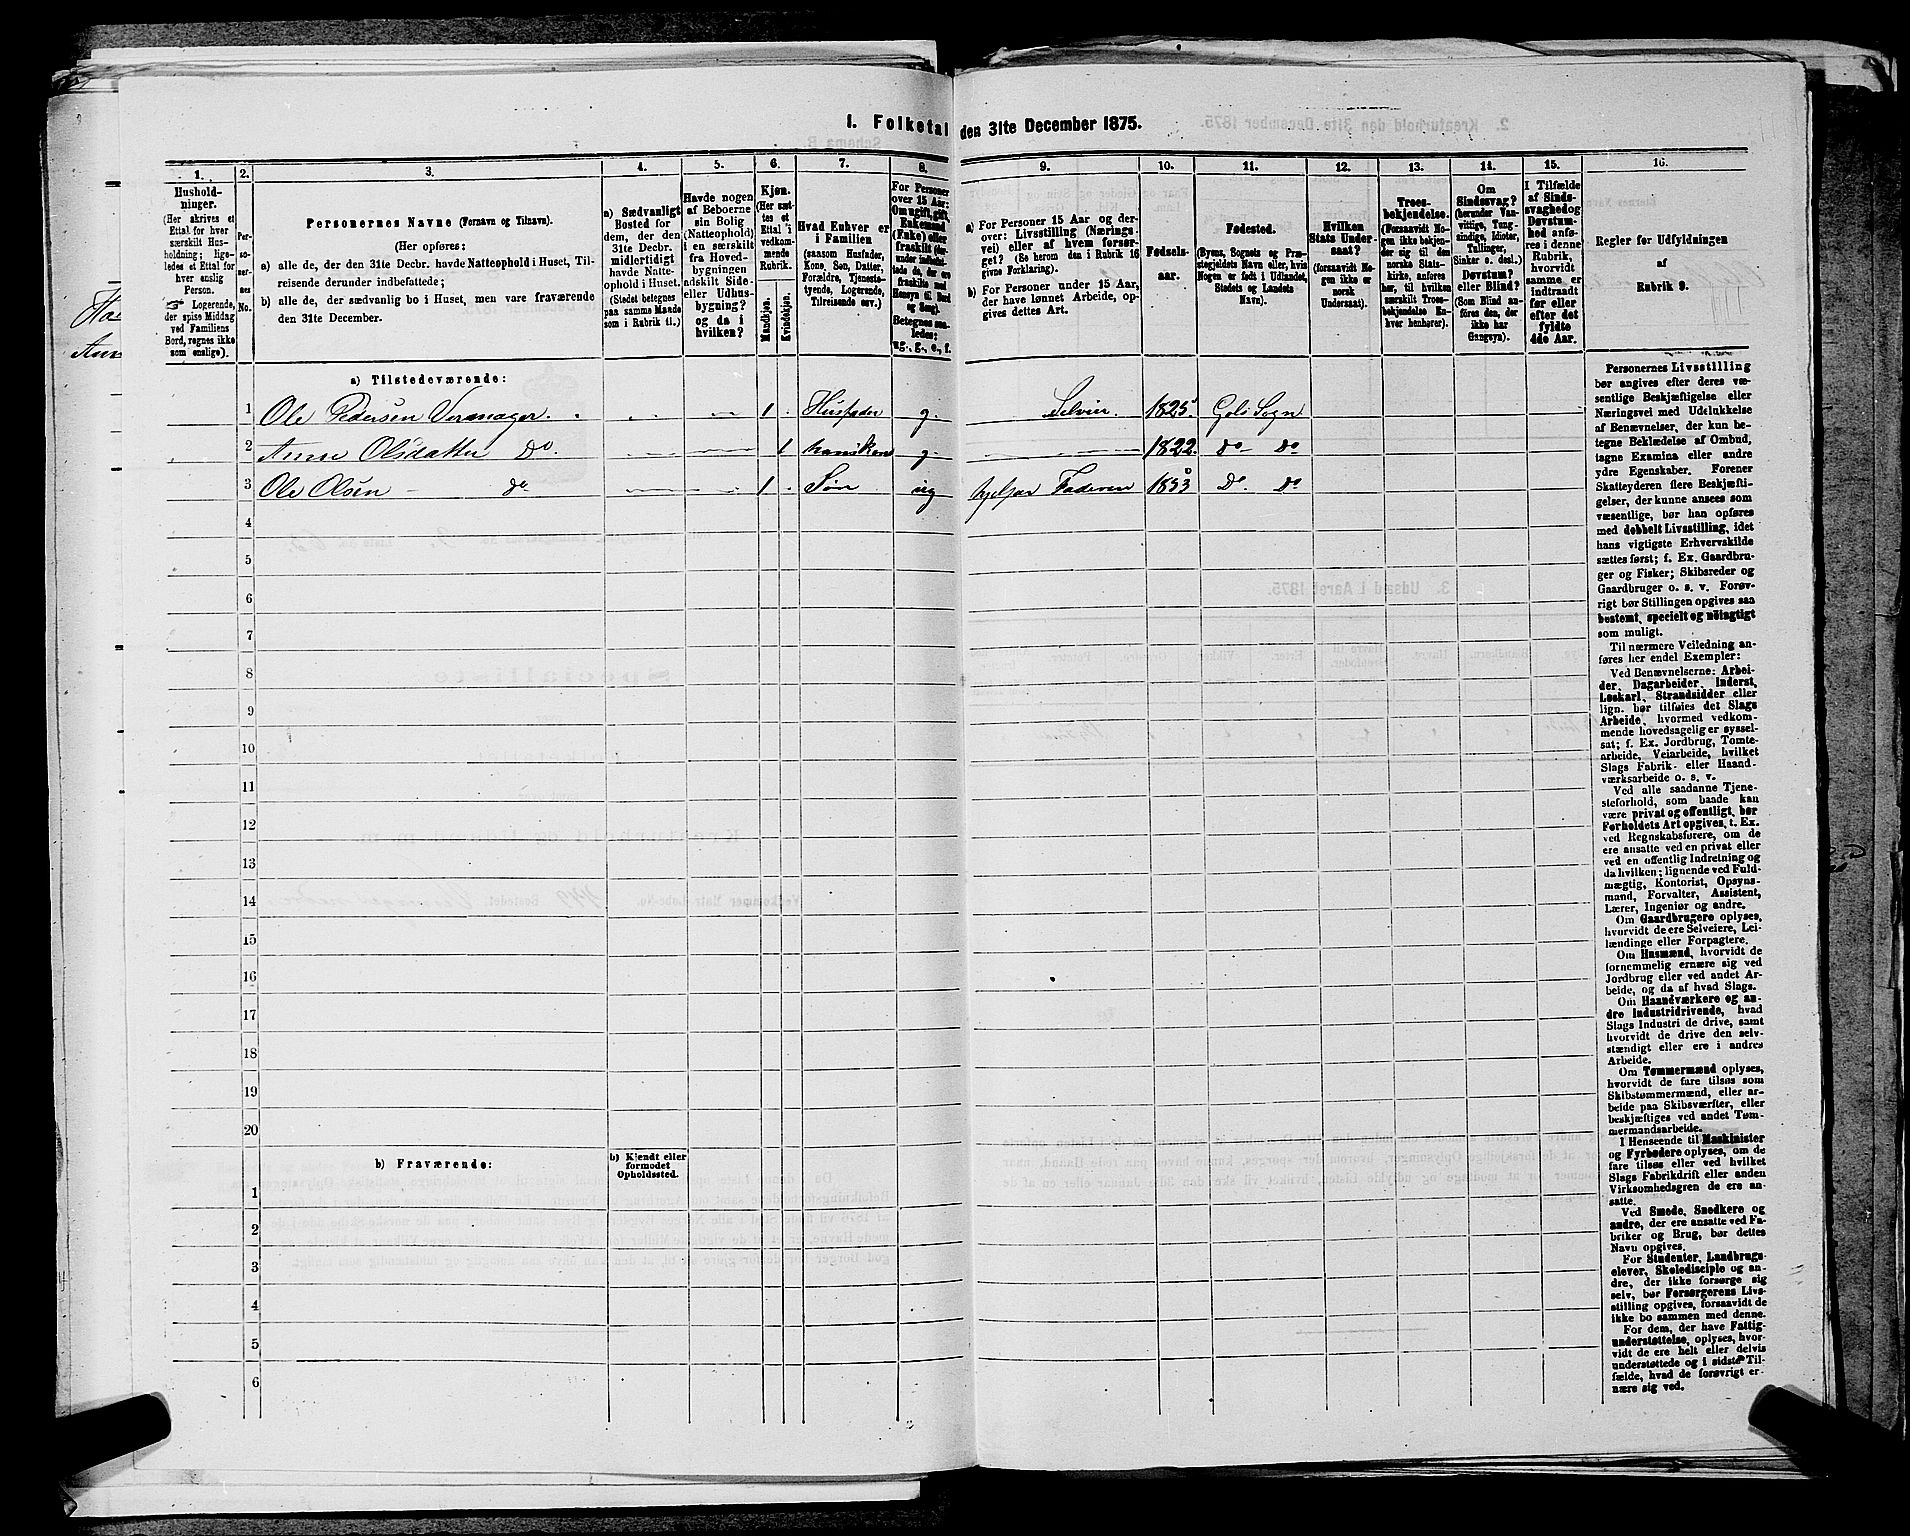 I. Folketal den 31te December 1875.
1. 2. 3. 4. 5. 6. 7. 8. 9. 10. 11. 12. 13. 14. 15. 16.
Hushold-
ninger.
(Her skrives et
Ettal for hver
særskilt Hus-
holdning; lige-
ledes et Ettal for
hver enslig
Person.
Logerende,
der spise Middag
ved Familiens
Bord, regnes ikke
som enslige).
Per-
so-
ner-
nes
No.
Personernes Navne (Fornavn og Tilnavn).
(Her opføres:
a) alle de, der den 31te Decbr. havde Natteophold i Huset, Til-
reisende derunder indbefattede;
b) alle de, der sædvanlig bo i Huset, men vare fraværende
den 31te December.
a) Sædvanligt
Bosted for
dem, der den
31te Decbr.
midlertidigt
havde Natte-
ophold i Huset.
(Stedet betegnes
paa samme Maade
som i Rubrik 11.)
Havde nogen
af Beboerne
sin Bolig
(Natteophold)
i en særskilt
fra Hoved-
bygningen
adskilt Side-
eller Udhus-
bygning?
og da i
hvilken?
Kjøn.
(Her sæt-
tes et
Ettal i
vedkom-
mende
Rubrik.
Mandkjøn.
Kvindekjøn.
Hvad Enhver er
i Familien
(saasom Husfader,
Kone, Søn, Datter,
Forældre, Tjeneste-
tyende, Logerende,
Tilreisende osv.)
For Personer
over 15 Aar:
Om ugift, gift,
Enkemand
(Enke) eller
fraskilt
Betegnes saa-
ledes:
ug., g., e., f.
a) For Personer 15 Aar og der-
over: Livsstilling (Nærings-
vei) eller af hvem forsør-
get? (Se herom den i Rubrik 16
givne Forklaring).
b) For Personer under 15 Aar,
der have lønnet Arbeide, op-
gives dettes Art.
Fødsels-
aar.
Fødested.
(Byens, Sognets og Præ-
stegjeldets Navn eller, hvis
Nogen er født i Udlandet,
Stedets og Landets
Navn).
Hvilken
Stats Under-
saat?
(forsaavidt No-
gen ikke er
norsk
Undersaat).
Troes-
bekjendelse.
(Forsaavidt No-
gen ikke bekjen-
der sig til den
norske Stats-
kirke, anføres
her, til hvilken
særskilt Troes-
bekjendelse En-
hver henhører).
Om
Sindssvag?
(herunder Van-
vittige, Tung-
sindige, Idioter,
Tullinger,
Sinker o. desl.)
Døvstum?
eller Blind?
(Som Blind an-
føres den, der
ikke har
Gangsyn).
I Tilfælde
af Sinds-
svaghed og
Døvstum-
hed anfø-
res i denne
Rubrik,
hvorvidt
samme er
indtraadt
før eller
efter det
fyldte
4de Aar.
Regler for Udfyldningen
af
Rubrik 9.
a) Tilstedeværende:
1 Ole Pedersen Vermager. 1 Husfader g Selveier. 1825 Gols Sogn
2 Anne Olsdatter Do. 1 hans Kone g 1822 do do
3 Ole Olsen do 1 Søn ug hjelper Faderen 1853 Do. Do
4
5
6
7
8
9
10
11
12
13
14
15
16
17
18
19
20
b) Fraværende:
b) Kjendt eller
formodet
Opholdssted.
1
2
3
4
5
6
Personernes Livsstilling
bør angives efter deres væ-
sentlige Beskjæftigelse eller
Næringsvei med Udelukkelse
af Benævnelser, der kun be-
tegne Beklædelse af Ombud,
tagne Examina eller andre
ydre Egenskaber. Forener
Skatteyderen flere Beskjæfti-
gelser, der kunne ansees som
væsentlige, bør han opføres
med dobbelt Livsstilling, idet
hans vigtigste Erhvervskilde
sættes først; f. Ex. Gaardbru-
ger og Fisker; Skibsreder og
Gaardbruger o. s. v. Forøv-
rigt bør Stillingen opgives saa
bestemt, specielt og nöiagtigt
som muligt.
Til nærmere Veiledning an-
føres her endel Exempler:
Ved Benævnelserne: Arbei-
der, Dagarbeider, Inderst,
Løskarl, Strandsidder eller
lign. bør tilføies det Slags
Arbeide, hvormed vedkom-
mende hovedsagelig er syssel-
sat; f. Ex. Jordbrug, Tomte-
arbeide, Veiarbeide, hvilket
Slags Fabrik- eller Haand-
værksarbeide o. s. v.
Ved alle saadanne Tjene-
steforhold, som baade kan
være privat og offentligt, bør
Forholdets Art opgives, t. Ex.
ved Regnskabsførere, om de
ere ansatte ved en privat eller
ved en offentlig Indretning og
da hvilken; lignende ved Fuld-
mægtig, Kontorist, Opsyns-
mand, Forvalter, Assistent,
Lærer, Ingeniør og andre.
Om Gaardbrugere oplyses,
hvorvidt de ere Selveiere, Lei-
lændinge eller Forpagtere.
Om Husmænd, hvorvidt de
fornemmelig ernære sig ved
Jordbrug eller ved andet Ar-
beide, og da af hvad Slags.
Om Haandværkere og an-
dre Industridrivende, hvad
Slags Industri de drive, samt
hvorvidt de drive den selv-
stændigt eller ere i andres
Arbeide.
Om Tømmermænd oplyses,
hvorvidt de fare tilsøs som
Skibstømmermænd, eller ar-
beide paa Skibsværfter, eller
beskjæftiges ved andet Tøm-
mermandsarbeide.
I Henseende til Maskinister
og Fyrbødere oplyses, om de
fare tilsøs eller ved hvilket
Slags Fabrikdrift eller anden
Virksomhedsgren de ere an-
satte.
Ved Smede, Snedkere og
andre, der ere ansatte ved Fa-
briker og Brug, bør dettes
Navn opgives.
For Studenter, Landbrugs-
elever, Skoledisciple og an-
dre, der ikke forsørge sig
selv, bør Forsørgerens Livs-
stilling opgives, forsaavidt de
ikke bo sammen med denne.
For dem, der have Fattig-
understøttelse, oplyses, hvor-
vidt de ere helt eller delvis
understøttede og i sidste Til-
fælde, hvad de forøvrigt er-
nære sig ved.